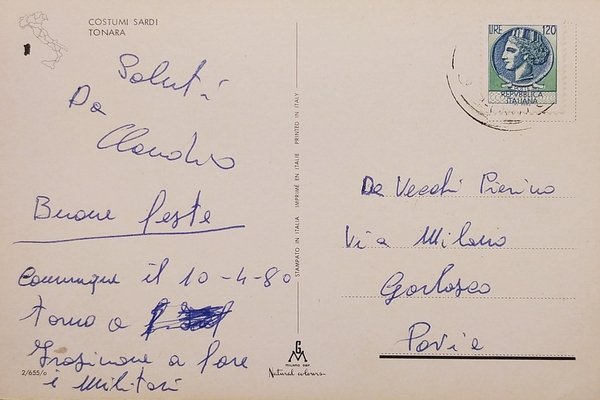 COSTUMI SARDI
TONARA
Saluti
Da
Claudio
Buone feste
Comunque il 10-4-80
torno a
Frosinone a fare
i Militari
2/655/o
STAMPATO IN ITALIA IMPRIMÉ EN ITALIE PRINTED IN ITALY
GM
MILANO
Natural colours
LIRE 120
REPUBBLICA
ITALIANA
De Vecchi Pierino
Via Milano
Garlasco
Pavia